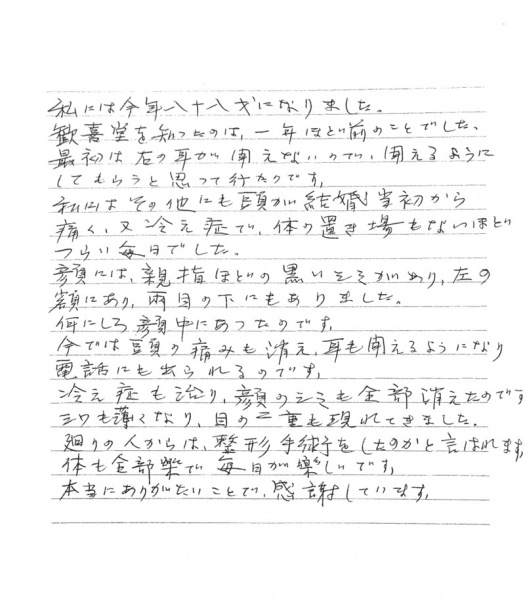 私には今年八十八才になりました。
歓喜堂を知ったのは、一年ほど前のことでした。
最初は左の耳が聞えないので、聞えるように
してもらうと思って行たのです。
私にはその他にも頭が結婚当初から
痛く、又冷え症で、体の置き場もないほど
つらい毎日でした。
顔には、親指ほどの黒いシミがあり、左の
額にあり、両目の下にもありました。
何にしろ顔中にあったのです。
今では頭の痛みも消え、耳も聞えるようになり
電話にも出られるのです。
冷え症も治り、顔のシミも全部消えたのです
シワも薄くなり、目の二重も現れてきました。
廻りの人からは、整形手術をしたのかと言はれます。
体も全部楽で毎日が楽しいです。
本当にありがたいことで、感謝しています。